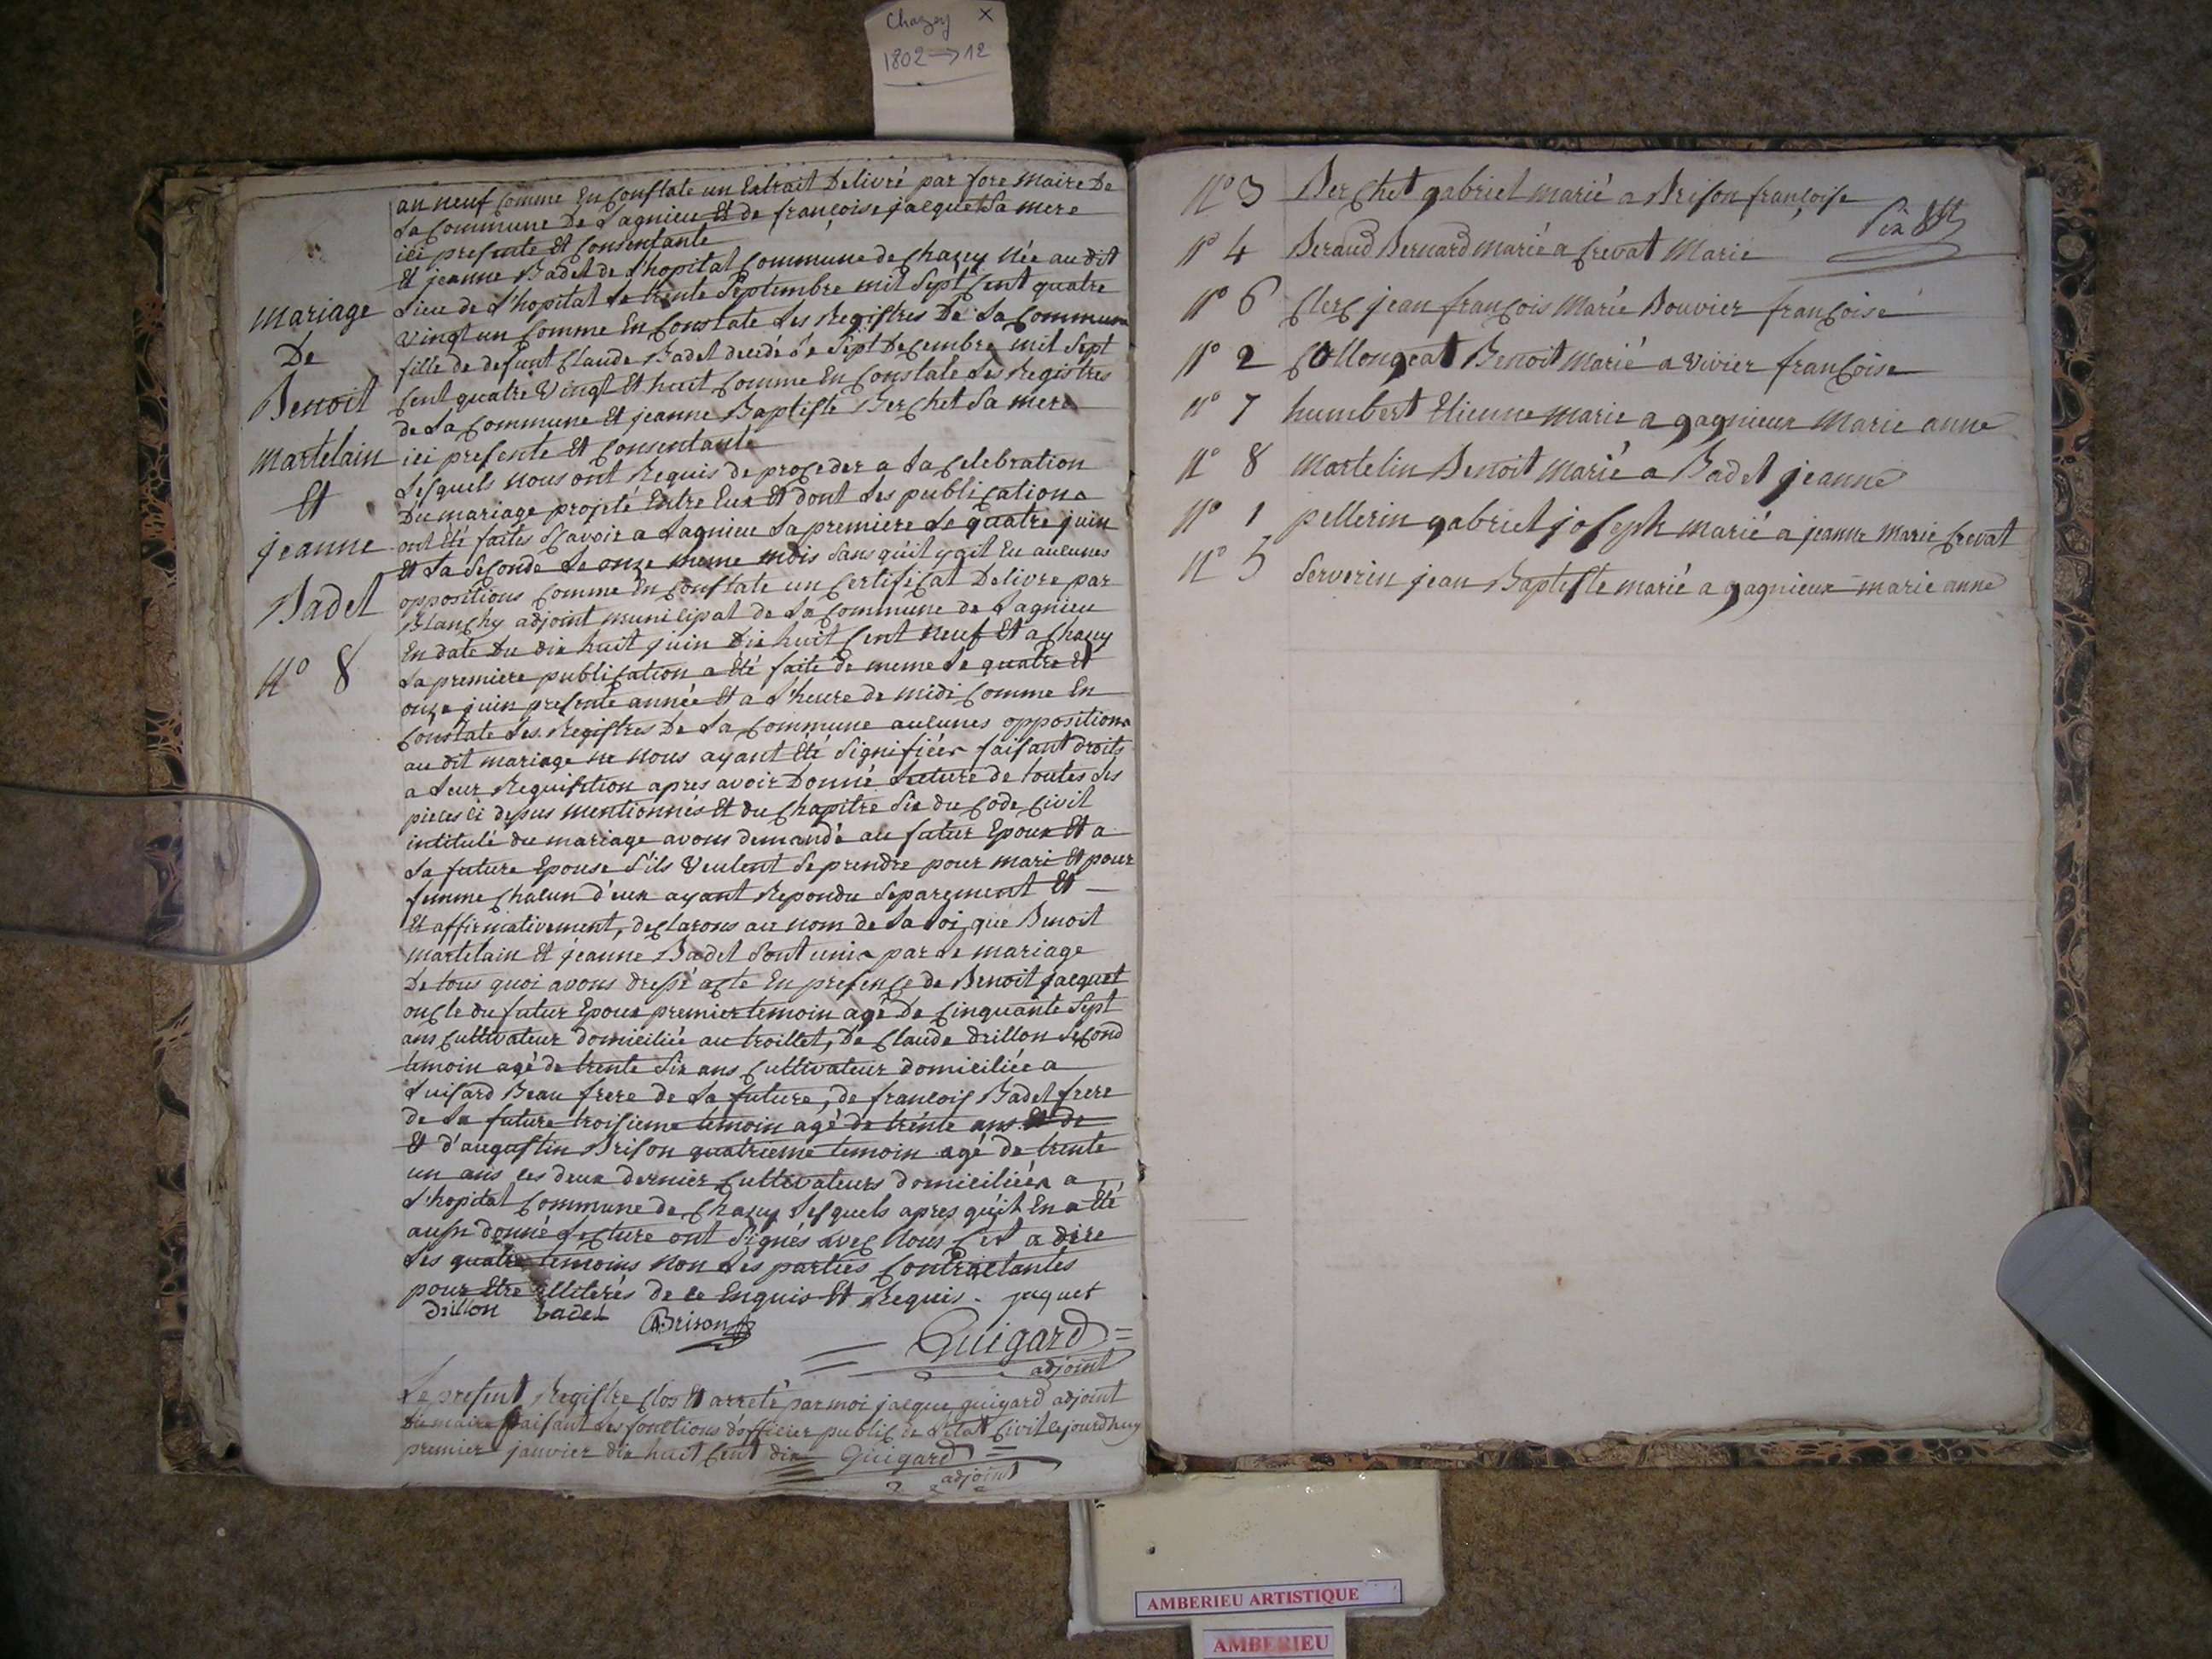 Chazey X
1802 → 12
an neuf comme En Constate un Extrait Delivré par fore Maire De
La Commune De Lagnieu Et de françoise jacquet Sa mere
ici presente Et Consentante
Et jeanne Badet de L'hopital Commune de Chazey Née au dit
Lieu de L'hopital Le trente Septembre mil Sept Cent quatre
Vingt un Comme En Constate Les Registres De La Commune
fille de defunt Claude Badet decedé Le Sept Decembre mil Sept
Cent quatre Vingt Et huit Comme En Constate Les Registres
de La Commune Et jeanne Baptiste Berchet Sa mere
ici presente Et Consentante
Lesquels nous ont Requis de proceder a La Celebration
Du mariage projeté Entre Eux Et dont Les publications
ont Eté faites Sçavoir a Lagnieu La premiere Le quatre juin
Et La Seconde Le onze meme mois Sans qu'il y ait Eu aucunes
oppositions Comme En Constate un Certificat Delivre par
Blanchy adjoint municipal de La Commune de Lagnieu
En date Du dix huit juin Dix huit Cent neuf Et a Chazey
La premiere publication a Eté faite de meme Le quatre Et
onze juin presente année Et a L'heure de midi Comme En
Constate Les Registres De La Commune aucunes oppositions
au dit mariage ne nous ayant Eté Signifiées faisant droits
a Leur Requisition apres avoir Donné Lecture de toutes Les
pieces ci depus mentionnés Et du Chapitre Six du Code Civil
intitulé du mariage avons demandé au futur Epoux Et a
La future Epouse S'ils Veulent Se prendre pour mari Et pour
femme Chacun d'eux ayant Repondu Separement Et
Et affirmativement, declarons au nom de La Loi, que Benoit
Martelain Et jeanne Badet Sont unis par Le mariage
De tous quoi avons dressé acte En presence de Benoit jacquet
oncle du futur Epoux premier temoin agé De Cinquante Sept
ans Cultivateur domiciliée au troillet, De Claude Drillon Second
temoin agé de trente Six ans Cultivateur domiciliée a
Luisard Beau frere de La future, de francois Badet frere
de La future troisieme temoin agé de trente ans Et de
Et d'augustin Brison quatrieme temoin agé de trente
un ans Les deux dernier Cultivateurs domiciliées a
L'hopital Commune de Chazey Lesquels apres qu'il En a Eté
aussi donné Lecture ont Signés avec Nous C'est a dire
Les quatre temoins Non Les parties Contractantes
pour Etre illiterés de ce Enquis Et Requis. jaquet
Drillon badet ABrison
Guigard
adjoint
Le present Registre Clos Et arreté par moi jacque guigard adjoint
du maire faisant Les fonctions d'officier public de L'etat Civil Cejourdhuy
premier janvier dix huit Cent dix Guigard
adjoint
Mariage
De
Benoit
Martelain
Et
jeanne
Badet
N° 8
N° 3 Berchet gabriel marié a Brison françoise
N° 4 Beraud Bernard marié a Crevat Marie
N° 6 Clerc jean francois Marié Bouvier francoise
N° 2 Collongeat Benoit Marié a Vivier francoise
N° 7 humbert Etienne marie a gagnieux Marie anne
N° 8 Martelin Benoit Marié a Badet jeanne
N° 1 pellerin gabriel joseph marié a jeanne Marie Crevat
N° 5 Serverin jean Baptiste marié a gagnieux marie anne
AMBERIEU ARTISTIQUE
AMBERIEU